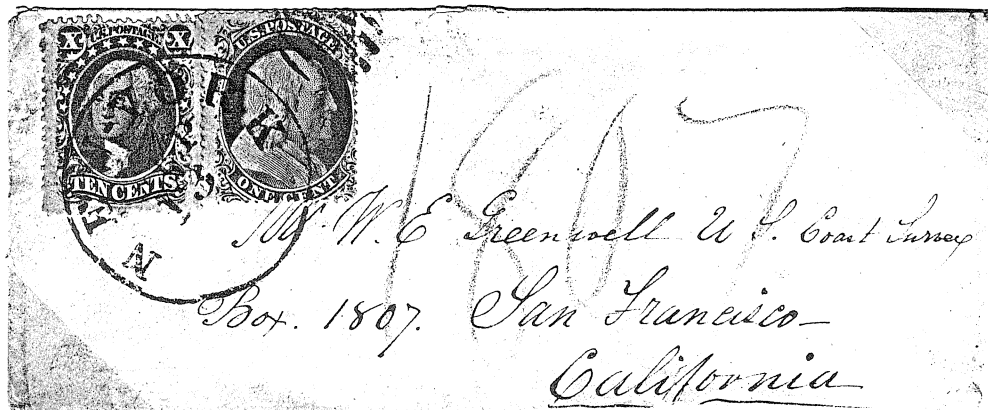 X U.S. POSTAGE X
TEN CENTS
U.S. POSTAGE
ONE CENT
NEW YORK
1807
Mr W. E Greenwell U S. Coast Survey
Box. 1807. San Francisco
California